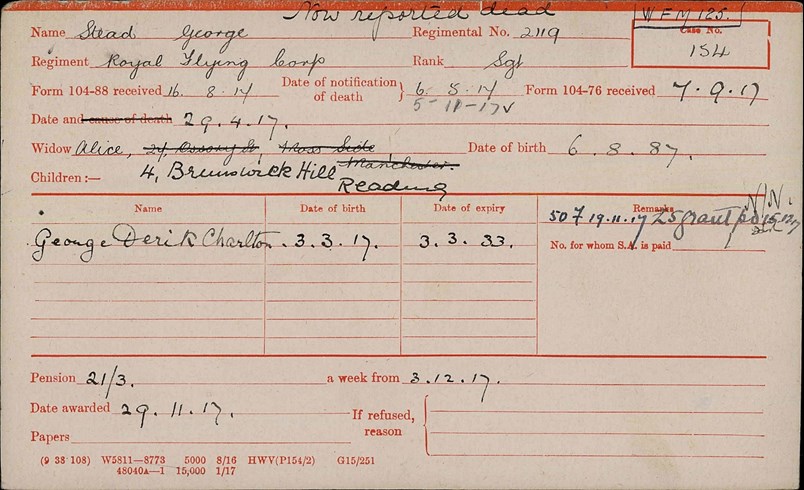 Now reported dead
W.F.M 125.
Name Stead George Regimental No. 2119
Case No. 154
Regiment Royal Flying Corp Rank Sgt
Form 104-88 received 16. 8. 17 Date of notification of death } 6. 5. 17 Form 104-76 received 7. 9. 17
5-11-17
Date and cause of death 29. 4. 17.
Widow Alice, 24, Ossory St Moss Side Manchester. Date of birth 6. 8. 87.
Children:— 4, Brunswick Hill
Reading
Name Date of birth Date of expiry Remarks
N/N.
50 F 19.11.17 £5 grant pd 15.12.17
George Derik Charlton. 3. 3. 17. 3. 3. 33. No. for whom S.A. is paid
Pension 21/3. a week from 3. 12. 17.
Date awarded 29. 11. 17. If refused, reason
Papers
(9 38 108) W5811—8773 5000 8/16 HWV(P154/2) G15/251
48040A—1 15,000 1/17